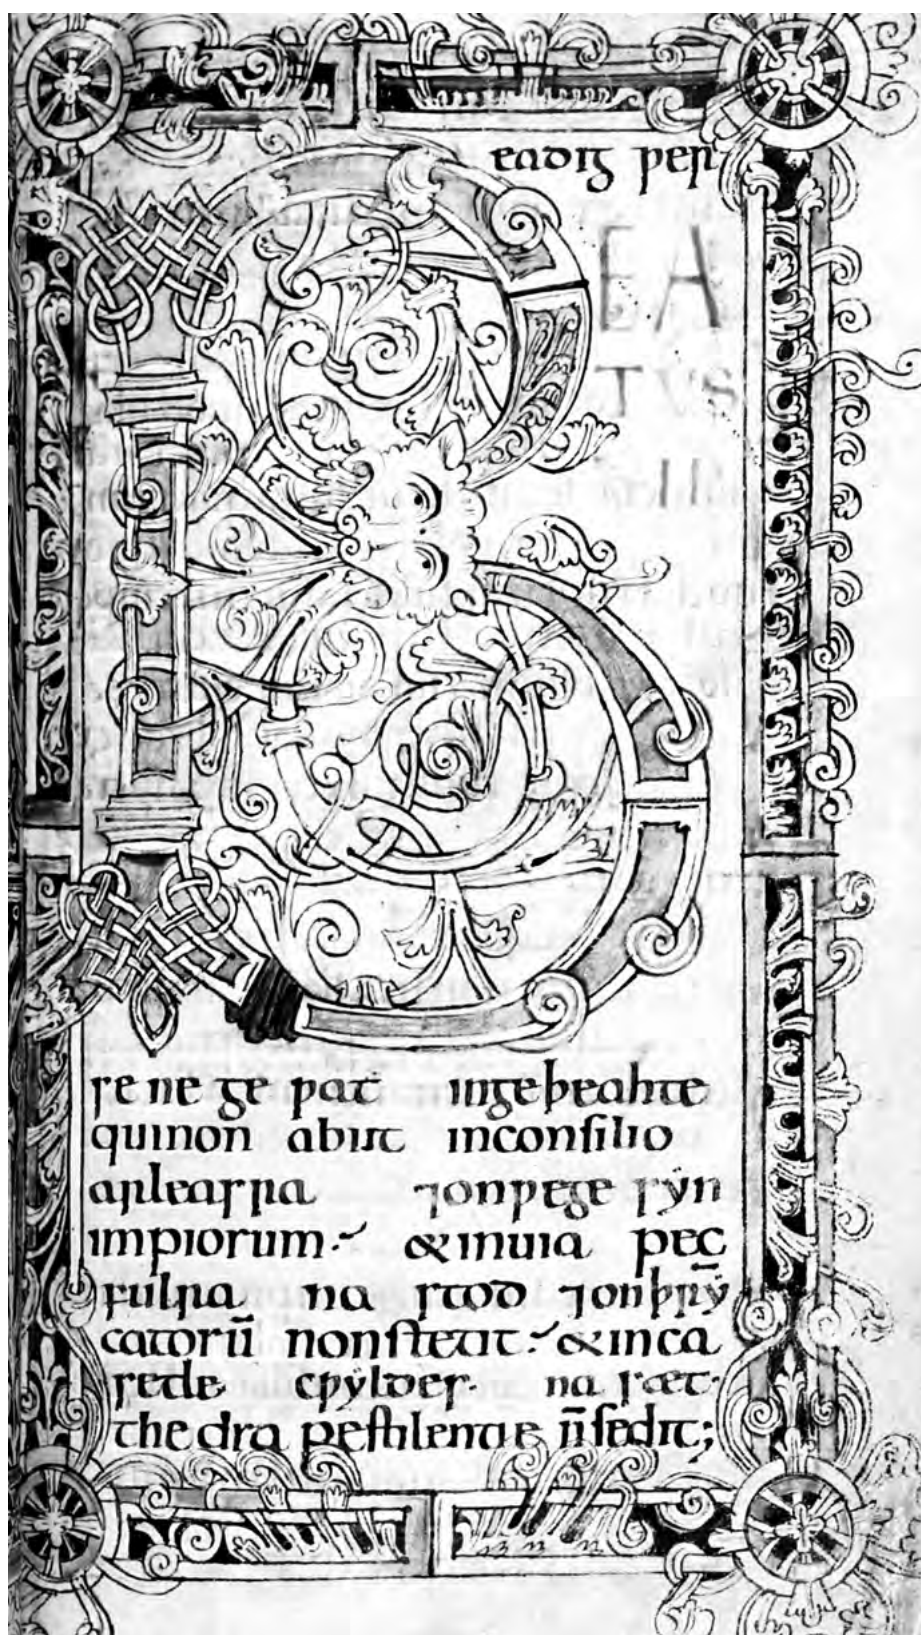 eadig ƿer
B
EA
TVS
se ne ge ƿat ingeþeahte
quinon abiit inconsilio
arleasra ⁊onƿege sẏn
impiorum. & inuia pec
fulra na stod ⁊onþrẏ
catorū nonstetit. & in ca
setle cƿẏldes. na sæt.
thedra pestilentiae n̄sedit;